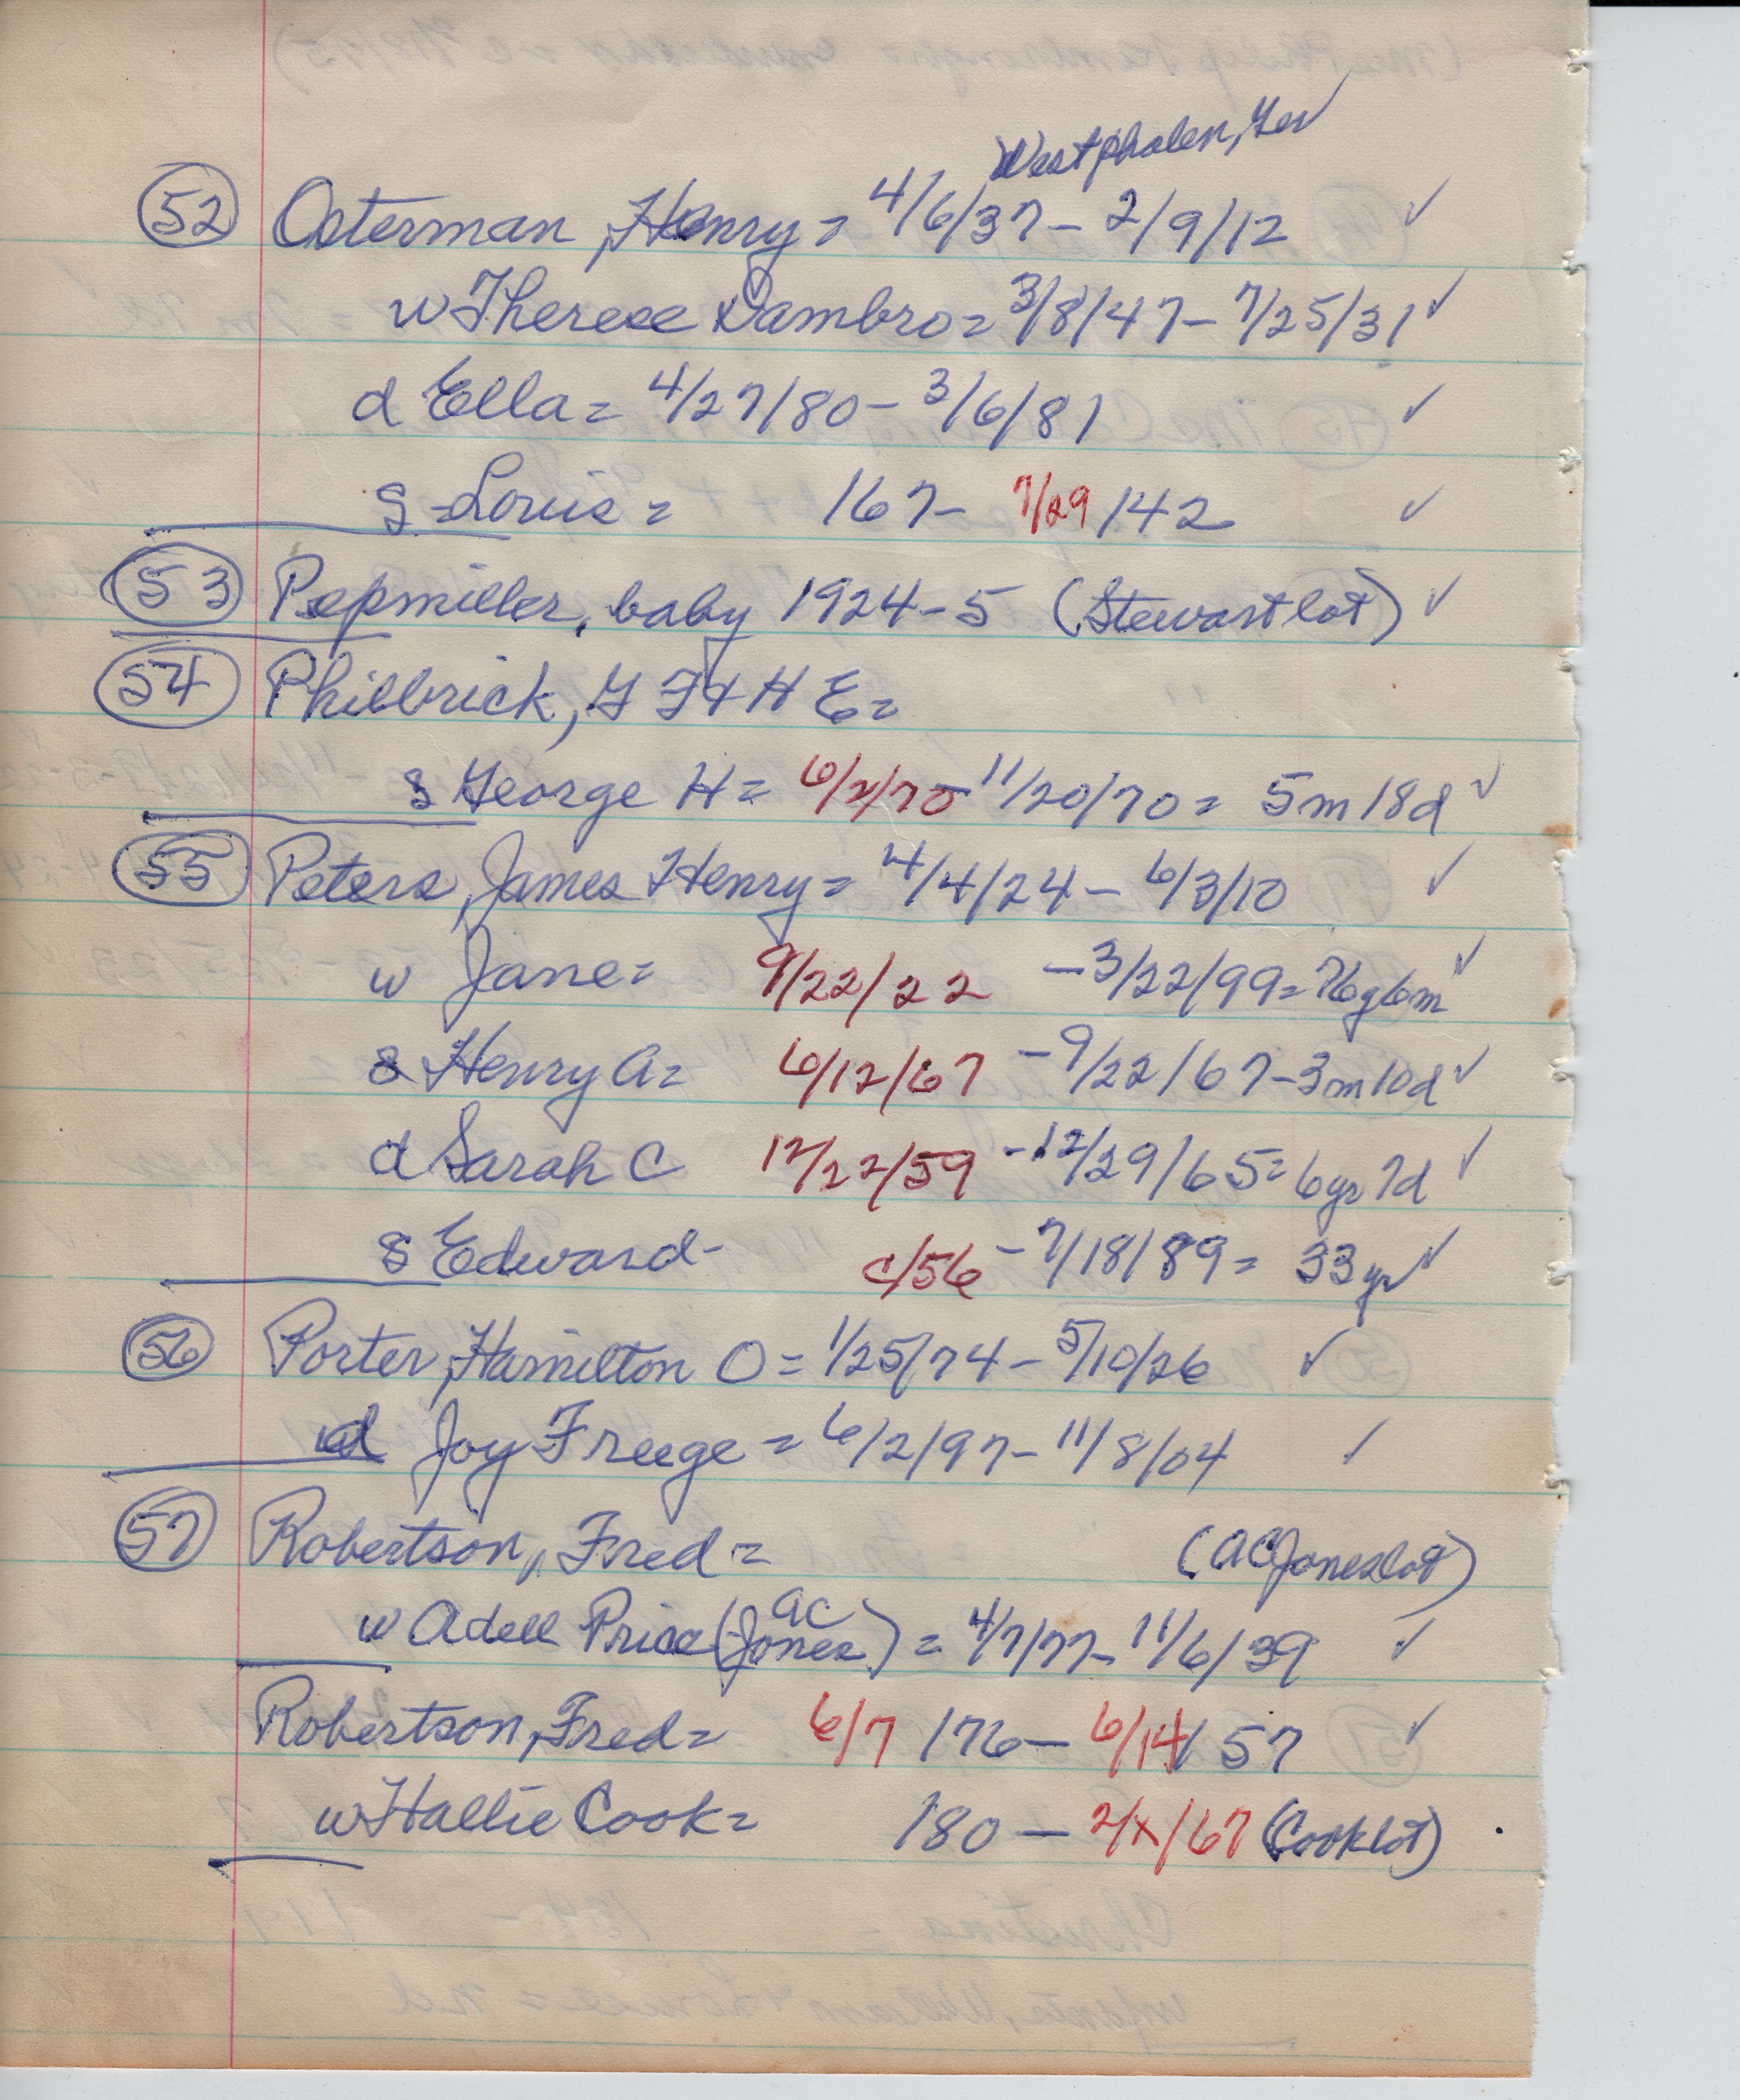 Westphalen, Ger ✓
52 Osterman, Henry = 4/6/37 – 2/9/12 ✓
w Therese Dambro = 3/8/47 – 7/25/31 ✓
d Ella = 4/27/80 – 3/6/81 ✓
s Louis = /67 – 7/29/42 ✓
53 Pepmiller, baby 1924-5 (Stewart lot) ✓
54 Philbrick, G F + H E =
s George H = 6/2/70 – 11/20/70 = 5m 18d ✓
55 Peters, James Henry = 4/4/24 – 6/3/10 ✓
w Jane = 9/22/22 – 3/22/99 = 76y6m ✓
s Henry A = 6/12/67 – 9/22/67 – 3m10d ✓
d Sarah C 12/22/59 – 12/29/65 = 6yr 7d ✓
s Edward – c/56 – 7/18/89 = 33yr ✓
56 Porter, Hamilton O = 1/25/74 – 5/10/26 ✓
d Joy Freege = 6/2/97 – 11/8/04 /
57 Robertson, Fred = (AC Jones lot)
w Adell Price (AC Jones) = 4/7/77 – 11/6/39 ✓
Robertson, Fred = 6/7/76 – 6/14/57 ✓
w Hallie Cook = /80 – 2/x/67 (Cook lot) .